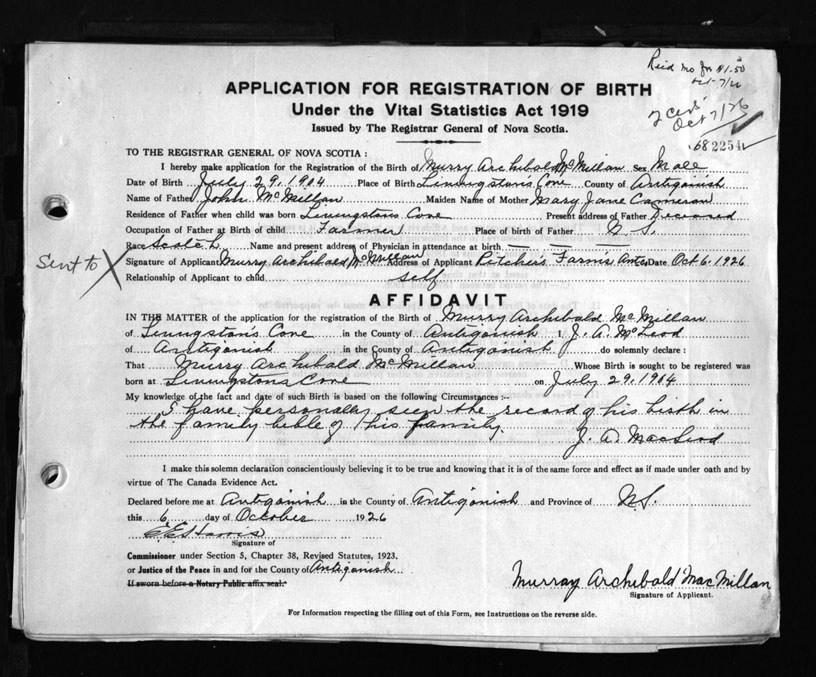 Reid mo for $1.50
Oct 7/26
2 certs
Oct 7/26
APPLICATION FOR REGISTRATION OF BIRTH
Under the Vital Statistics Act 1919
Issued by The Registrar General of Nova Scotia.
682254
TO THE REGISTRAR GENERAL OF NOVA SCOTIA :
I hereby make application for the Registration of the Birth of Murry Archibald McMillan Sex Male
Date of Birth July 29. 1904 Place of Birth Livingstons Cove County of Antigonish
Name of Father John McMillan Maiden Name of Mother Mary Jane Cameron
Residence of Father when child was born Livingstons Cove Present address of Father Deceased
Occupation of Father at Birth of child Farmer Place of birth of Father N. S.
Race Scotch Name and present address of Physician in attendance at birth — — —
Sent to X
Signature of Applicant Murry Archibald McMillan Address of Applicant Pitcher's Farms Ant. Date Oct 6. 1926
Relationship of Applicant to child self
AFFIDAVIT
IN THE MATTER of the application for the registration of the Birth of Murry Archibald McMillan
of Livingstons Cove in the County of Antigonish I J. A. McLeod
of Antigonish in the County of Antigonish do solemnly declare :
That Murry Archibald McMillan Whose Birth is sought to be registered was
born at Livingstons Cove on July 29. 1904
My knowledge of the fact and date of such Birth is based on the following Circumstances :-
I have personally seen the record of his birth in
the family bible of his family.
J. A. MacLeod
I make this solemn declaration conscientiously believing it to be true and knowing that it is of the same force and effect as if made under oath and by
virtue of The Canada Evidence Act.
Declared before me at Antigonish in the County of Antigonish and Province of N.S.
this 6 day of October 1926
Harris
Signature of
Commissioner under Section 5, Chapter 38, Revised Statutes, 1923,
or Justice of the Peace in and for the County of Antigonish
If sworn before a Notary Public affix seal.
Murray Archibald MacMillan
Signature of Applicant.
For Information respecting the filling out of this Form, see Instructions on the reverse side.